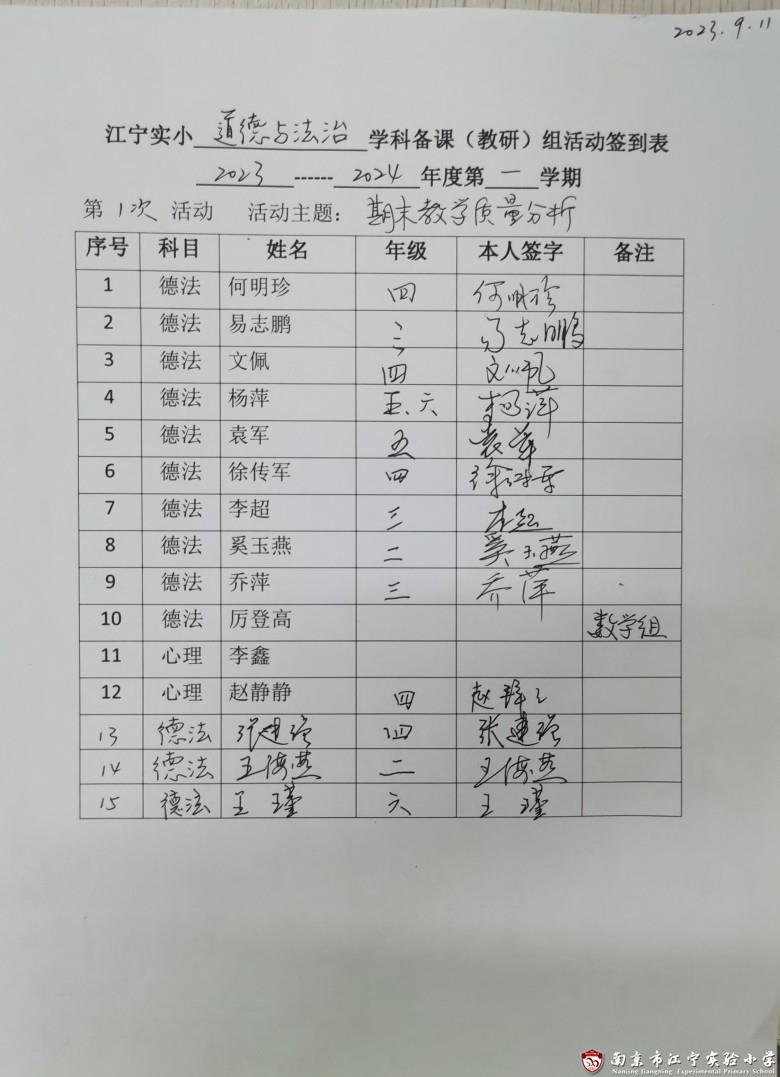 2023.9.11
江宁实小 道德与法治 学科备课（教研）组活动签到表
2023 ------ 2024 年度第 一 学期
第 1 次 活动 活动主题： 期末教学质量分析
序号 科目 姓名 年级 本人签字 备注
1 德法 何明珍 四 何明珍
2 德法 易志鹏 二 易志鹏
3 德法 文佩 四 文佩
4 德法 杨萍 五、六 杨萍
5 德法 袁军 五 袁军
6 德法 徐传军 四 徐传军
7 德法 李超 三 李超
8 德法 奚玉燕 二 奚玉燕
9 德法 乔萍 三 乔萍
10 德法 厉登高 数学组
11 心理 李鑫
12 心理 赵静静 四 赵静静
13 德法 张建强 四 张建强
14 德法 王海燕 二 王海燕
15 德法 王瑾 六 王瑾
南京市江宁实验小学
Nanjing Jiangning Experimental Primary School